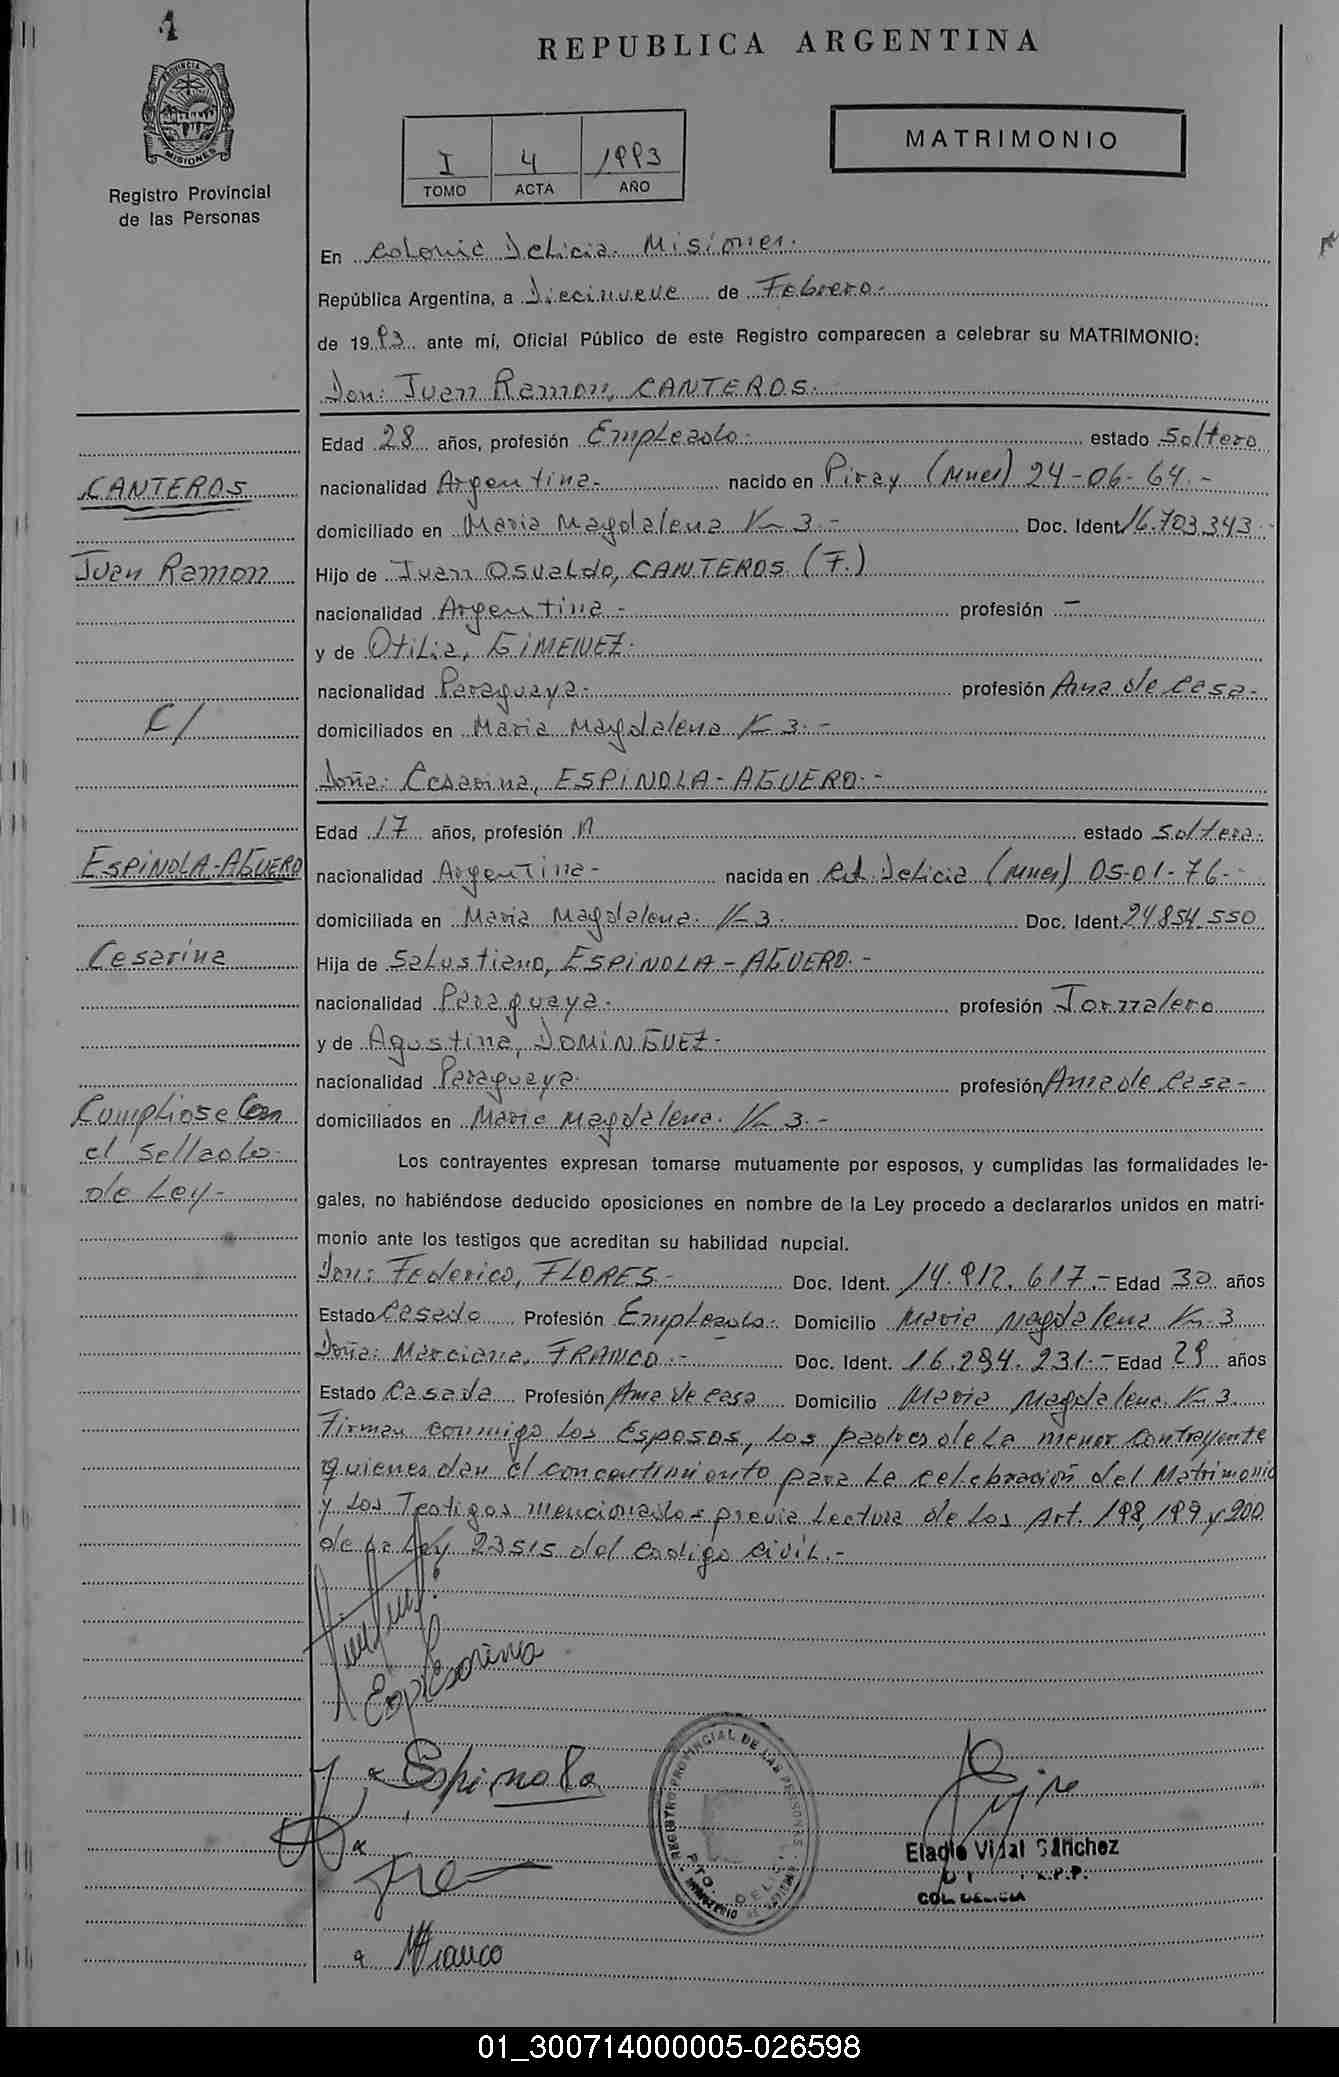 1
REPUBLICA ARGENTINA
PROVINCIA
MISIONES
Registro Provincial
de las Personas
I 4 1993
TOMO ACTA AÑO
MATRIMONIO
En Colonia Delicia. Misiones.
República Argentina, a Diecinueve de Febrero.-
de 1993 ante mí, Oficial Público de este Registro comparecen a celebrar su MATRIMONIO:
Don: Juan Ramon, CANTEROS.
Edad 28 años, profesión Empleado.- estado Soltero
nacionalidad Argentina.- nacido en Piray (Mnes) 24-06-64.-
domiciliado en Maria Magdalena Km 3.- Doc. Ident. 16.703.343.-
Hijo de Juan Osvaldo, CANTEROS (F.)
nacionalidad Argentina.- profesión -
y de Otilia, GIMENEZ.
nacionalidad Paraguaya.- profesión Ama de Casa.-
domiciliados en Maria Magdalena Km 3.-
Doña: Cesarina, ESPINOLA-AGUERO.-
Edad 17 años, profesión n estado Soltera.
nacionalidad Argentina.- nacida en Col. Delicia (Mnes) 05-01-76.-
domiciliada en Maria Magdalena. Km 3. Doc. Ident. 24.854.550
Hija de Salustiano, ESPINOLA-AGUERO.-
nacionalidad Paraguaya. profesión Jornalero
y de Agustina, DOMINGUEZ.-
nacionalidad Paraguaya. profesión Ama de Casa-
domiciliados en Maria Magdalena. Km 3.-
Los contrayentes expresan tomarse mutuamente por esposos, y cumplidas las formalidades le-
gales, no habiéndose deducido oposiciones en nombre de la Ley procedo a declararlos unidos en matri-
monio ante los testigos que acreditan su habilidad nupcial.
Don: Federico, FLORES.- Doc. Ident. 14.912.617.- Edad 30 años
Estado Casado Profesión Empleado. Domicilio Maria Magdalena Km. 3
Doña: Marciana, FRANCO.- Doc. Ident. 16.294.231.- Edad 29 años
Estado Casada Profesión Ama de Casa Domicilio Maria Magdalena Km 3.
Firman conmigo los Esposos, los padres de la menor Contrayente
quienes dan el concentimiento para la celebración del Matrimonio
y los Testigos mencionados previa Lectura de los Art. 198, 199 y 200
de la Ley 23515 del Codigo Civil.-
CANTEROS
Juan Ramon
C/
ESPINOLA-AGUERO
Cesarina
Cumpliose Con
el Sellado
de Ley-
Esp Cesarina
Espinola
REGISTRO PROVINCIAL DE LAS PERSONAS
PTO. DELICIA
MINISTERIO DE
Eladio Vidal Sánchez
R.P.P.
COL. DELICIA
MFranco
01_300714000005-026598